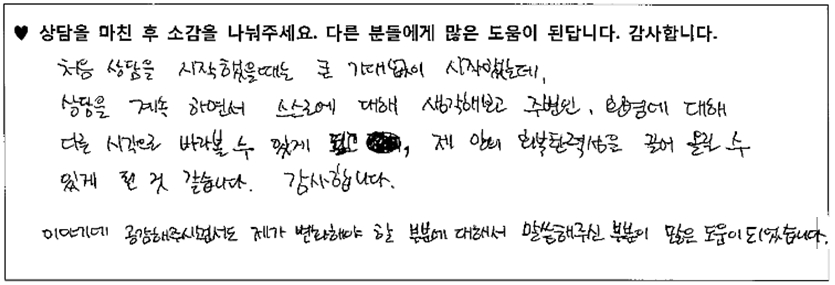 ♥ 상담을 마친 후 소감을 나눠주세요. 다른 분들에게 많은 도움이 된답니다. 감사합니다.
처음 상담을 시작했을때는 큰 기대없이 시작했는데,
상담을 계속 하면서 스스로에 대해 생각해보고 주변인, 환경에 대해
다른 시각으로 바라볼 수 있게 됐고, 제 안의 회복탄력성을 끌어 올릴 수
있게 된 것 같습니다. 감사합니다.
이야기에 공감해주시면서도 제가 변화해야 할 부분에 대해서 말씀해주신 부분이 많은 도움이 되었습니다.